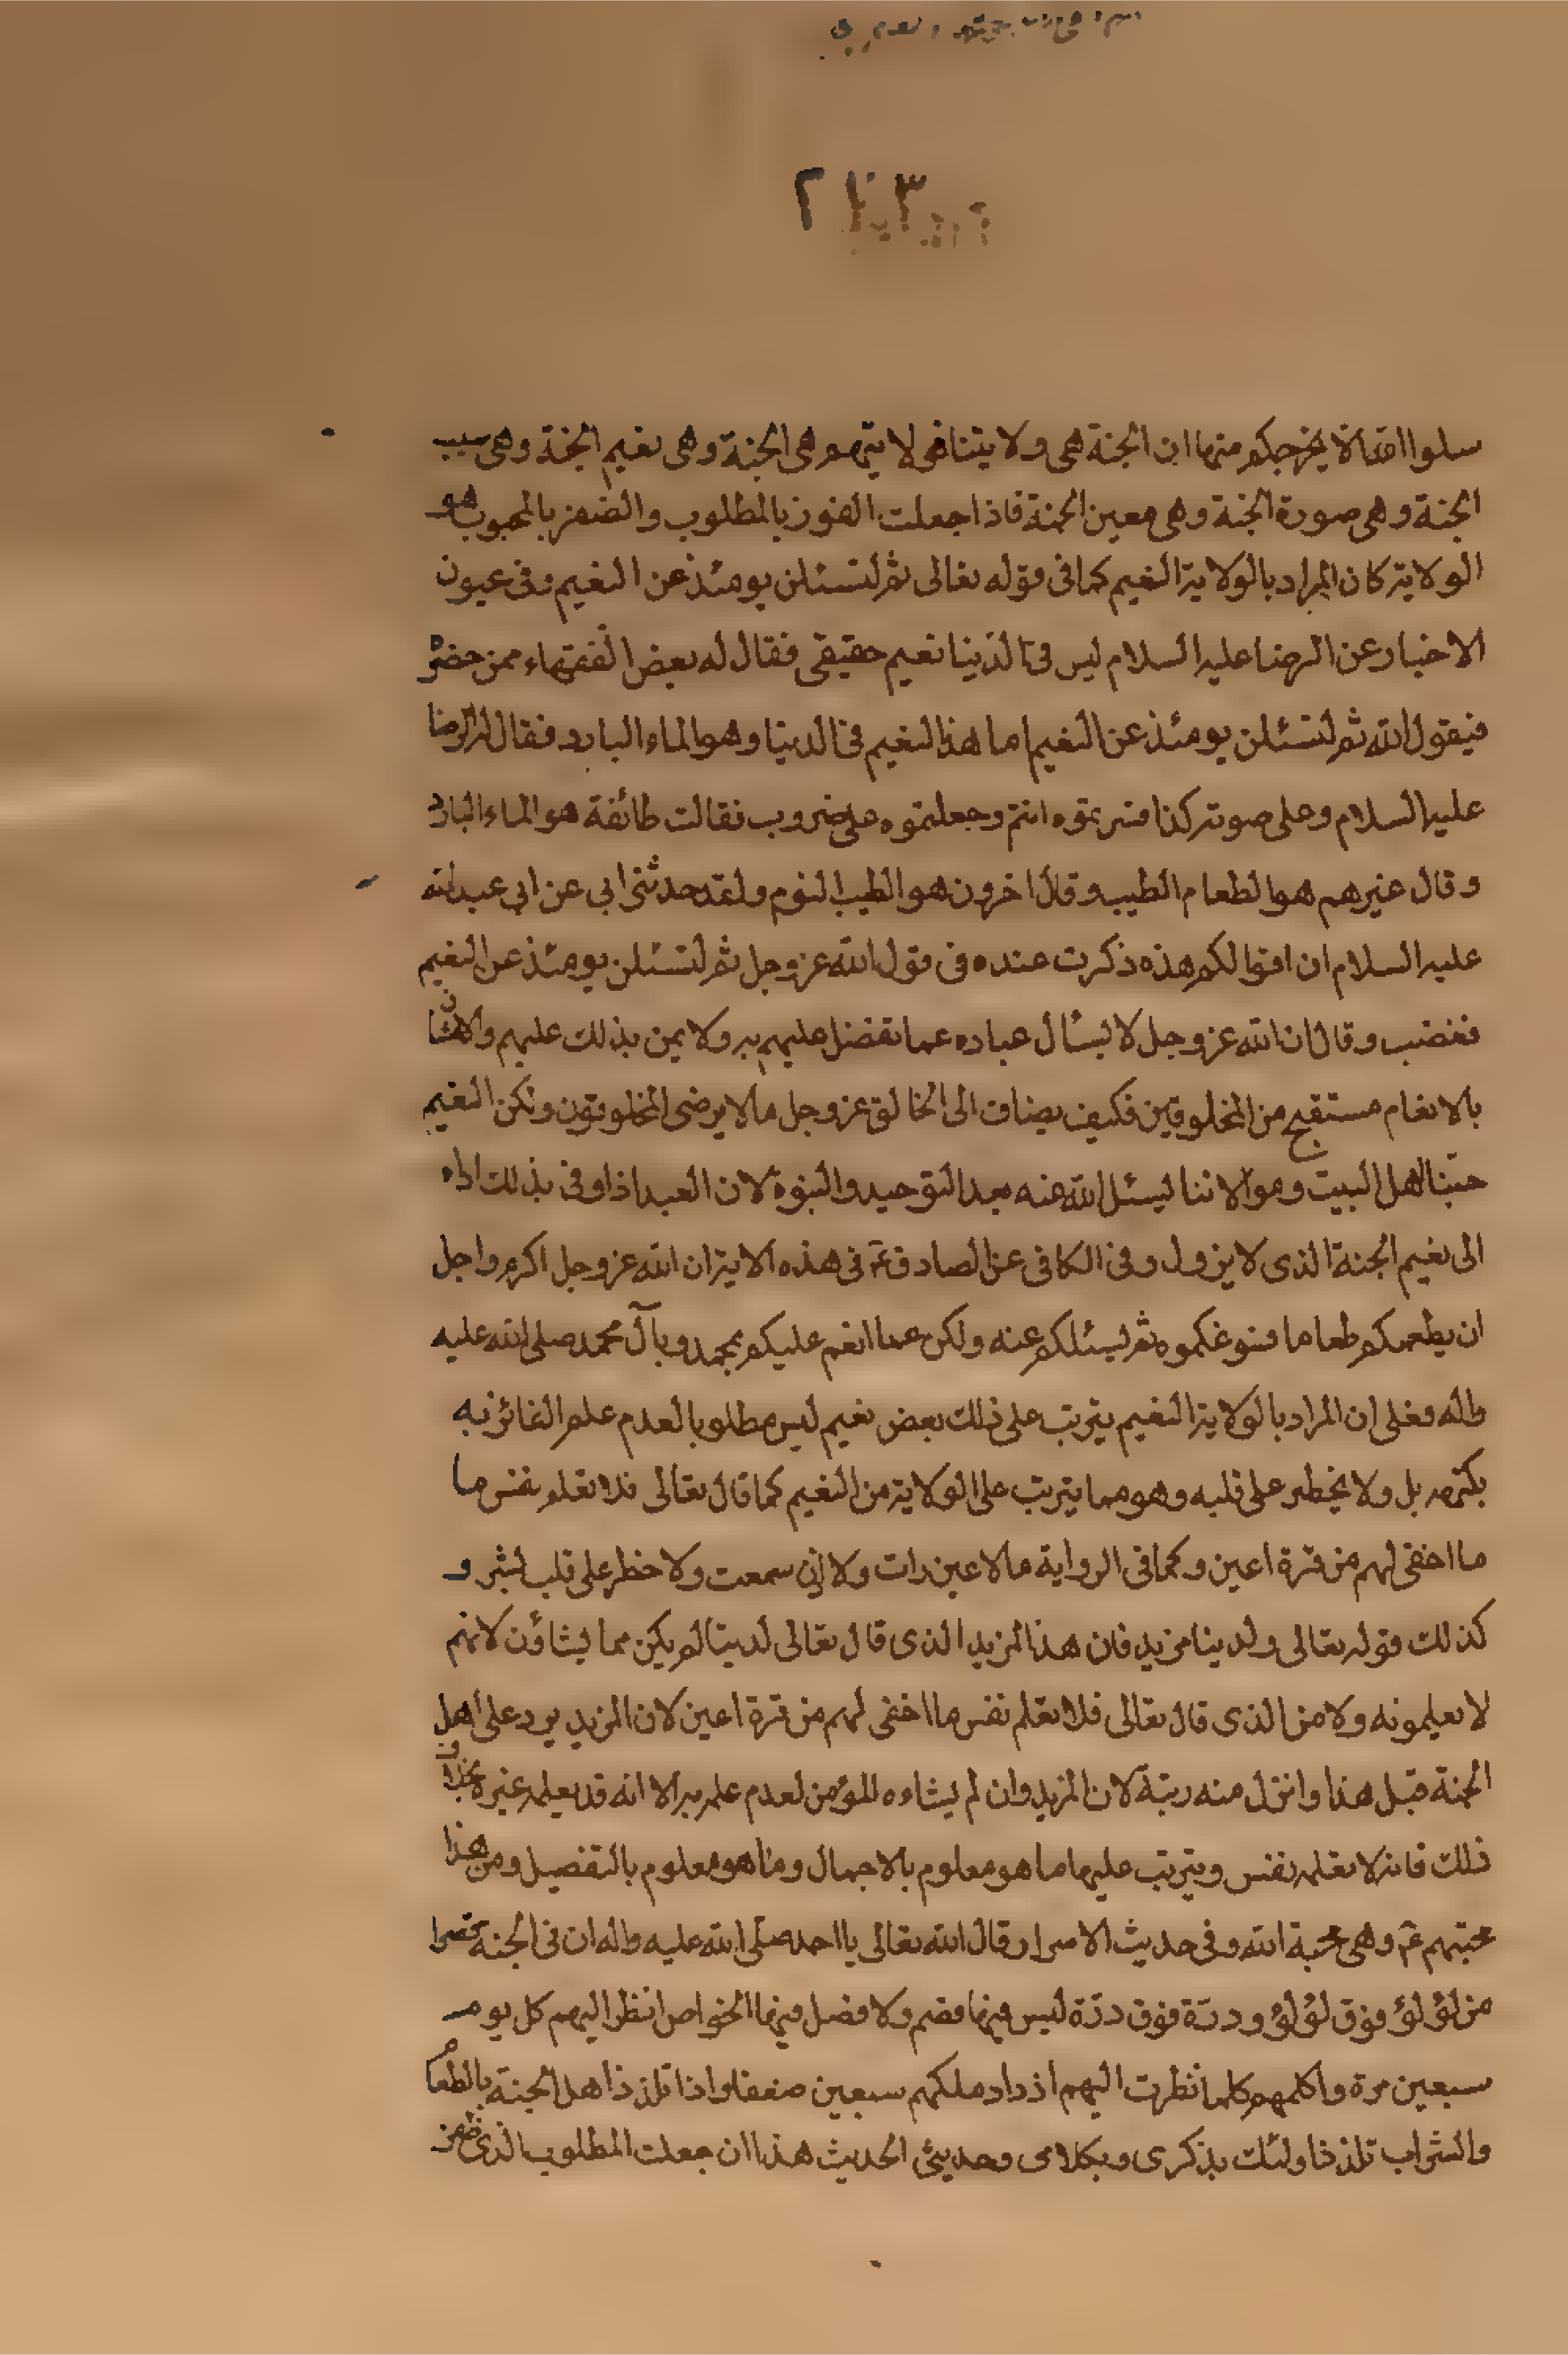 سلوا الله ان لا يخرجكم منها ان الجنة هى ولا يتنا فهى لا يتهم هى الجنة وهى نعيم الجنة وهى سبب
الجنة وهى صورة الجنة وهى معين الجنة فاذا جعلت الفوز بالمطلوب والضفر بالمحبوب هو
الولاية كان المراد بالولاية النعيم كما فى قوله تعالى ثم لتسئلن يومئذ عن النعيم وفى عيون
الاخبار عن الرضا عليه السلام ليس فى الدنيا نعيم حقيقى فقال له بعض الفقهاء ممن حضر
فيقول الله ثم لتسئلن يومئذ عن النعيم اما هذا النعيم فى الدنيا وهو الماء البارد فقال له الرضا
عليه السلام وعلى صوته كذا فسرتموه انتم وجعلتموه على ضروب فقالت طائفة هو الماء البارد
وقال غيرهم هو الطعام الطيب وقال اخرون هو الطيب النوم ولقد حدثنى ابى عن ابى عبد الله
عليه السلام ان اقوالكم هذه ذكرت عنده فى قول الله عز وجل ثم لتسئلن يومئذ عن النعيم
فغضب وقال ان الله عز وجل لا يسأل عباده عما تفضل عليهم به ولا يمن بذلك عليهم والامتنان
بالانعام مستقبح من المخلوقين فكيف يضاف الى الخالق عز وجل ما لا يرضى المخلوقون ولكن النعيم
حبنا اهل البيت وموالاتنا يسئل الله عنه بعد التوحيد والنبوة لان العبد اذا وفى بذلك اداه
الى نعيم الجنة الذى لا يزول وفى الكافى عن الصادق ع فى هذه الاية ان الله عز وجل اكرم واجل
ان يطعمكم طعاما فسوغكموه ثم ليسئلكم عنه ولكن عما انعم عليكم بمحمد وبآل محمد صلى الله عليه
واله فعلى ان المراد بالولاية النعيم يترتب على ذلك بعض نعيم ليس مطلوبا لعدم علم الفائز به
بكنهه بل ولا يخطر على قلبه وهو مما يترتب على الولاية من النعيم كما قال تعالى فلا تعلم نفس ما
ما اخفى لهم من قرة اعين وكما فى الرواية ما لا عين رات ولا اذن سمعت ولا خطر على قلب بشر و
كذلك قوله تعالى ولدينا مزيد فان هذا المزيد الذى قال تعالى لدينا لم يكن مما يشاؤن لانهم
لا يعلمونه ولا من الذى قال تعالى فلا تعلم نفس ما اخفى لهم من قرة اعين لان المزيد يرد على اهل
الجنة قبل هذا وانزل منه رتبة لان المزيد وان لم يشاءه المؤمن لعدم علمه به الا انه قد يعلمه غيره بخلاف
ذلك فانه لا تعلمه نفس ويترتب عليها ما هو معلوم بالاجمال وما هو معلوم بالتفصيل ومن هذا
محبتهم ع وهى محبة الله وفى حديث الاسرار قال الله تعالى يا احمد صلى الله عليه واله ان فى الجنة قصرا
من لؤلؤ فوق لؤلؤ ودرّة فوق درّة ليس فيها فصم ولا فصل فيها الخواص انظر اليهم كل يوم
سبعين مرة واكلمهم كلما نظرت اليهم ازداد ملكهم سبعين ضعفا واذا تلذذ اهل الجنة بالطعام
والشراب تلذذ اولئك بذكرى وبكلامى وحديثى الحديث هذا ان جعلت المطلوب الذى